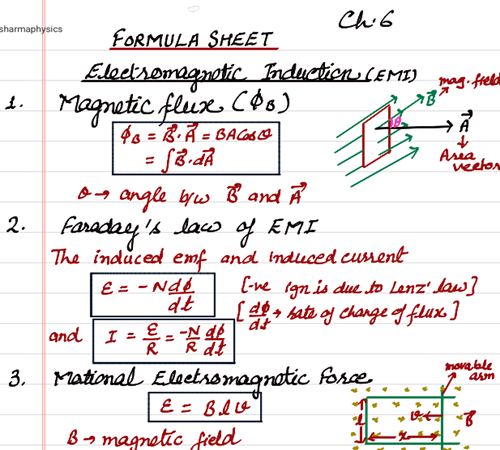 sharmaphysics
Ch.6
FORMULA SHEET
Electromagnetic Induction (EMI)
1. Magnetic flux (ΦB)
ΦB = B⃗.A⃗ = BACosθ
= ∫B⃗.dA⃗
θ → angle b/w B⃗ and A⃗
mag. field
B⃗
θ
A⃗
Area
vector
2. Faraday's law of EMI
The induced emf and induced current
ε = -N dφ/dt
[-ve sign is due to Lenz' law]
[dφ/dt → rate of change of flux]
and I = ε/R = -N/R dφ/dt
3. Mational Electromagnetic Force
ε = Blv
B → magnetic field
movable
arm
l
v
x
B⃗